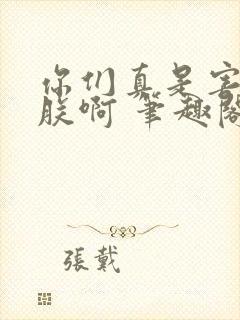 你们真是害
朕啊 筆趣阁
張戴